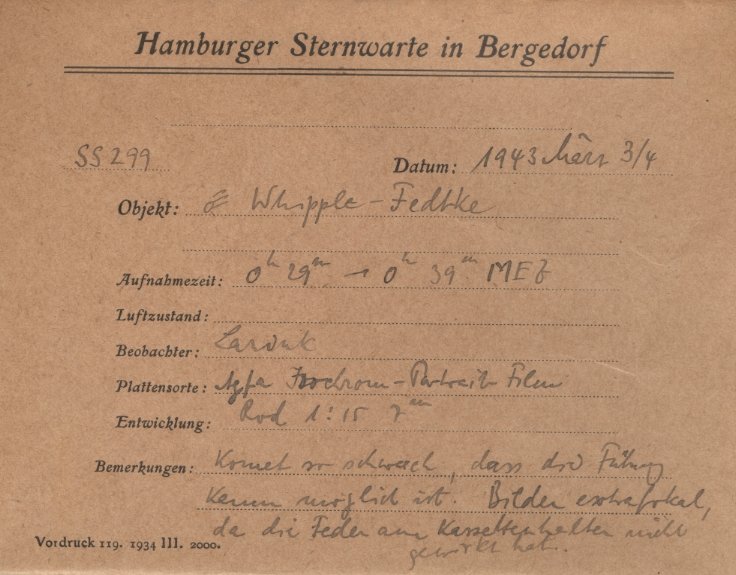 Hamburger Sternwarte in Bergedorf
SS 299
Datum: 1943 März 3/4
Objekt: Whipple-Fedtke
Aufnahmezeit: 0h 29m → 0h 39m MEZ
Luftzustand:
Beobachter:
Plattensorte: Agfa Isochrom-Portrait-Film
Entwicklung: Rod 1:15 7m
Bemerkungen: Komet so schwach, dass die Führung
kaum möglich ist. Bilder extrafokal,
da die Feder am Kassettenhalter nicht
gewirkt hat.
Vordruck 119. 1934 III. 2000.